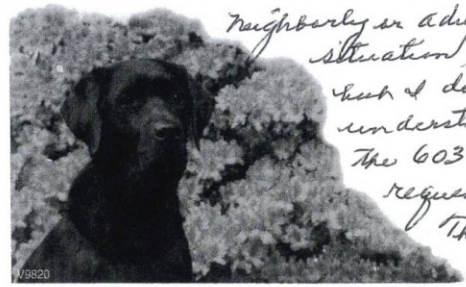 neighborly or adv
situation
but I do
underst
the 603
reque
Th
V9820